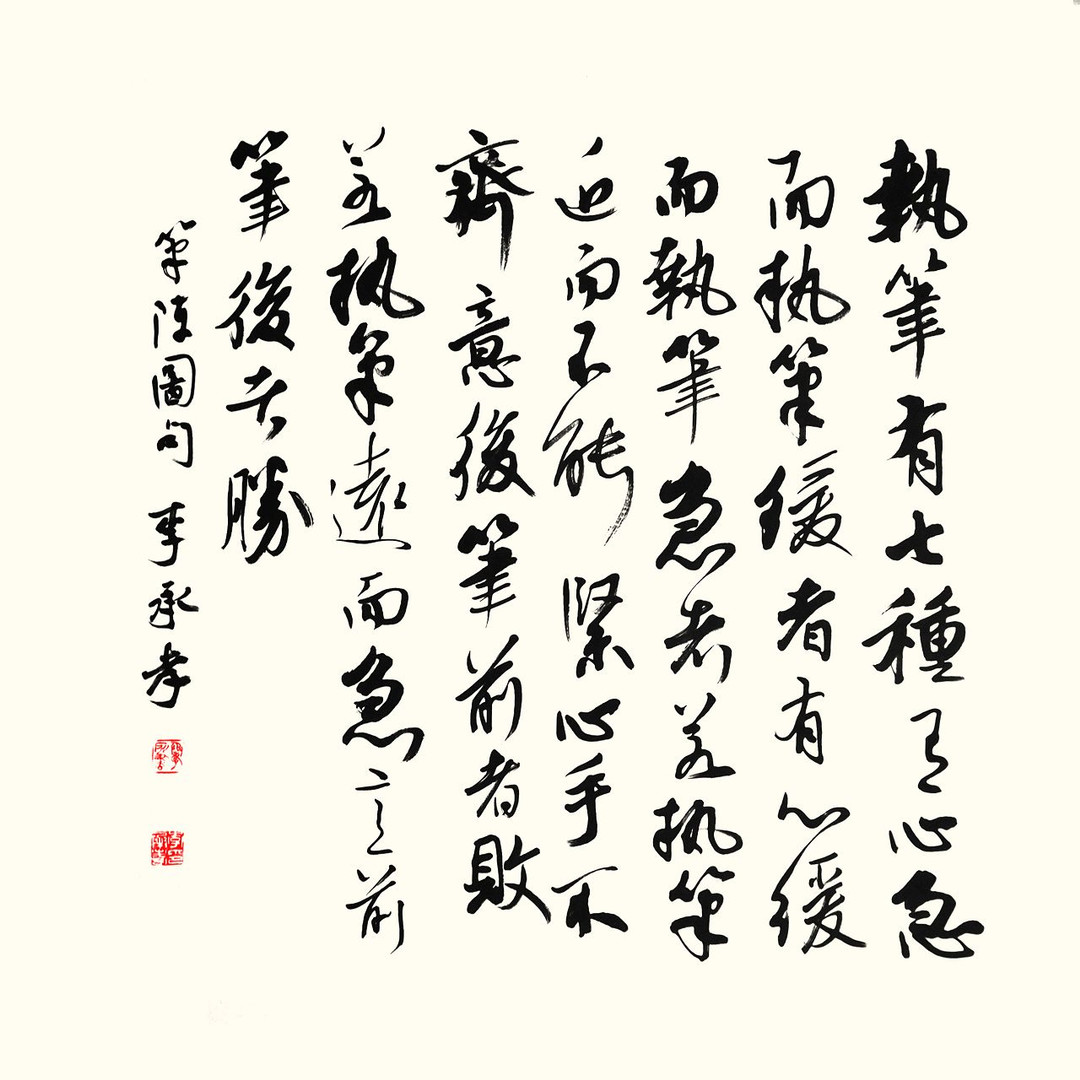 執筆有七種有心急
而執筆緩者有心緩
而執筆急者若執筆
近而不能緊心手不
齊意後筆前者敗
若執筆遠而急意前
筆後者勝
筆陣圖句 李承孝